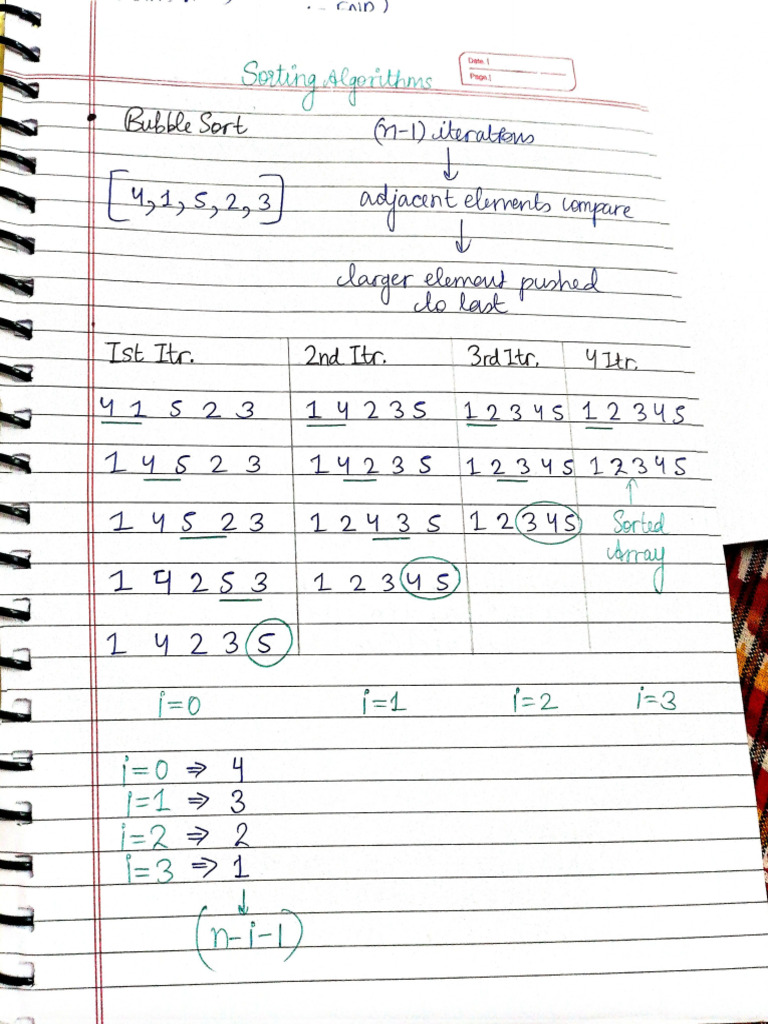 Sorting Algorithms
Date |
Page |
Bubble Sort (n-1) iterations
↓
[4,1,5,2,3] adjacent elements compare
↓
larger element pushed
to last
Ist Itr. 2nd Itr. 3rd Itr. 4 Itr.
4 1 5 2 3 1 4 2 3 5 1 2 3 4 5 1 2 3 4 5
1 4 5 2 3 1 4 2 3 5 1 2 3 4 5 1 2 3 4 5
↑
1 4 5 2 3 1 2 4 3 5 1 2 3 4 5 Sorted
Array
1 4 2 5 3 1 2 3 4 5
1 4 2 3 5
i=0 i=1 i=2 i=3
i=0 ⇒ 4
i=1 ⇒ 3
i=2 ⇒ 2
i=3 ⇒ 1
↓
(n-i-1)